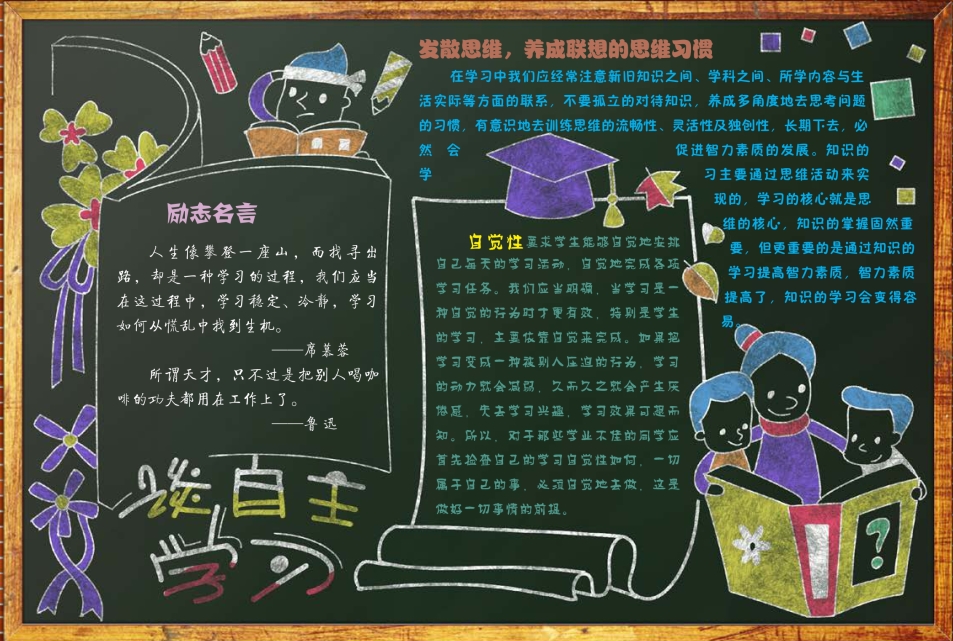 发散思维，养成联想的思维习惯
在学习中我们应经常注意新旧知识之间、学科之间、所学内容与生
活实际等方面的联系，不要孤立的对待知识，养成多角度地去思考问题
的习惯，有意识地去训练思维的流畅性、灵活性及独创性，长期下去，必
然 会 促进智力素质的发展。知识的
学 习主要通过思维活动来实
现的，学习的核心就是思
维的核心，知识的掌握固然重
要，但更重要的是通过知识的
学习提高智力素质，智力素质
提高了，知识的学习会变得容
易。
励志名言
人生像攀登一座山，而找寻出
路，却是一种学习的过程，我们应当
在这过程中，学习稳定、冷静，学习
如何从慌乱中找到生机。
——席慕蓉
所谓天才，只不过是把别人喝咖
啡的功夫都用在工作上了。
——鲁迅
自觉性要求学生能够自觉地安排
自己每天的学习活动，自觉地完成各项
学习任务。我们应当明确，当学习是一
种自觉的行为时才更有效，特别是学生
的学习，主要依靠自觉来完成。如果把
学习变成一种被别人压迫的行为，学习
的动力就会减弱，久而久之就会产生厌
倦感，失去学习兴趣，学习效果可想而
知。所以，对于那些学业不佳的同学应
首先检查自己的学习自觉性如何，一切
属于自己的事，必须自觉地去做，这是
做好一切事情的前提。
谈自主
学习
?